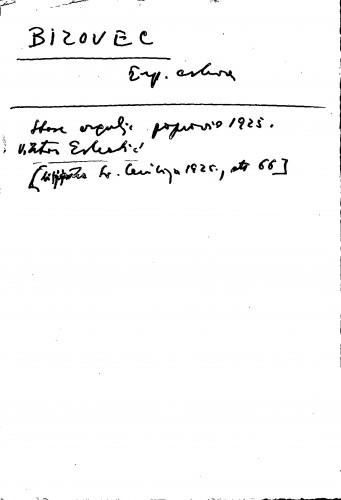 BIZOVEC
Žup. crkva
Stare orgulje popravio 1925.
Viktor
[ Sv. Cecilija 1925., str 66]